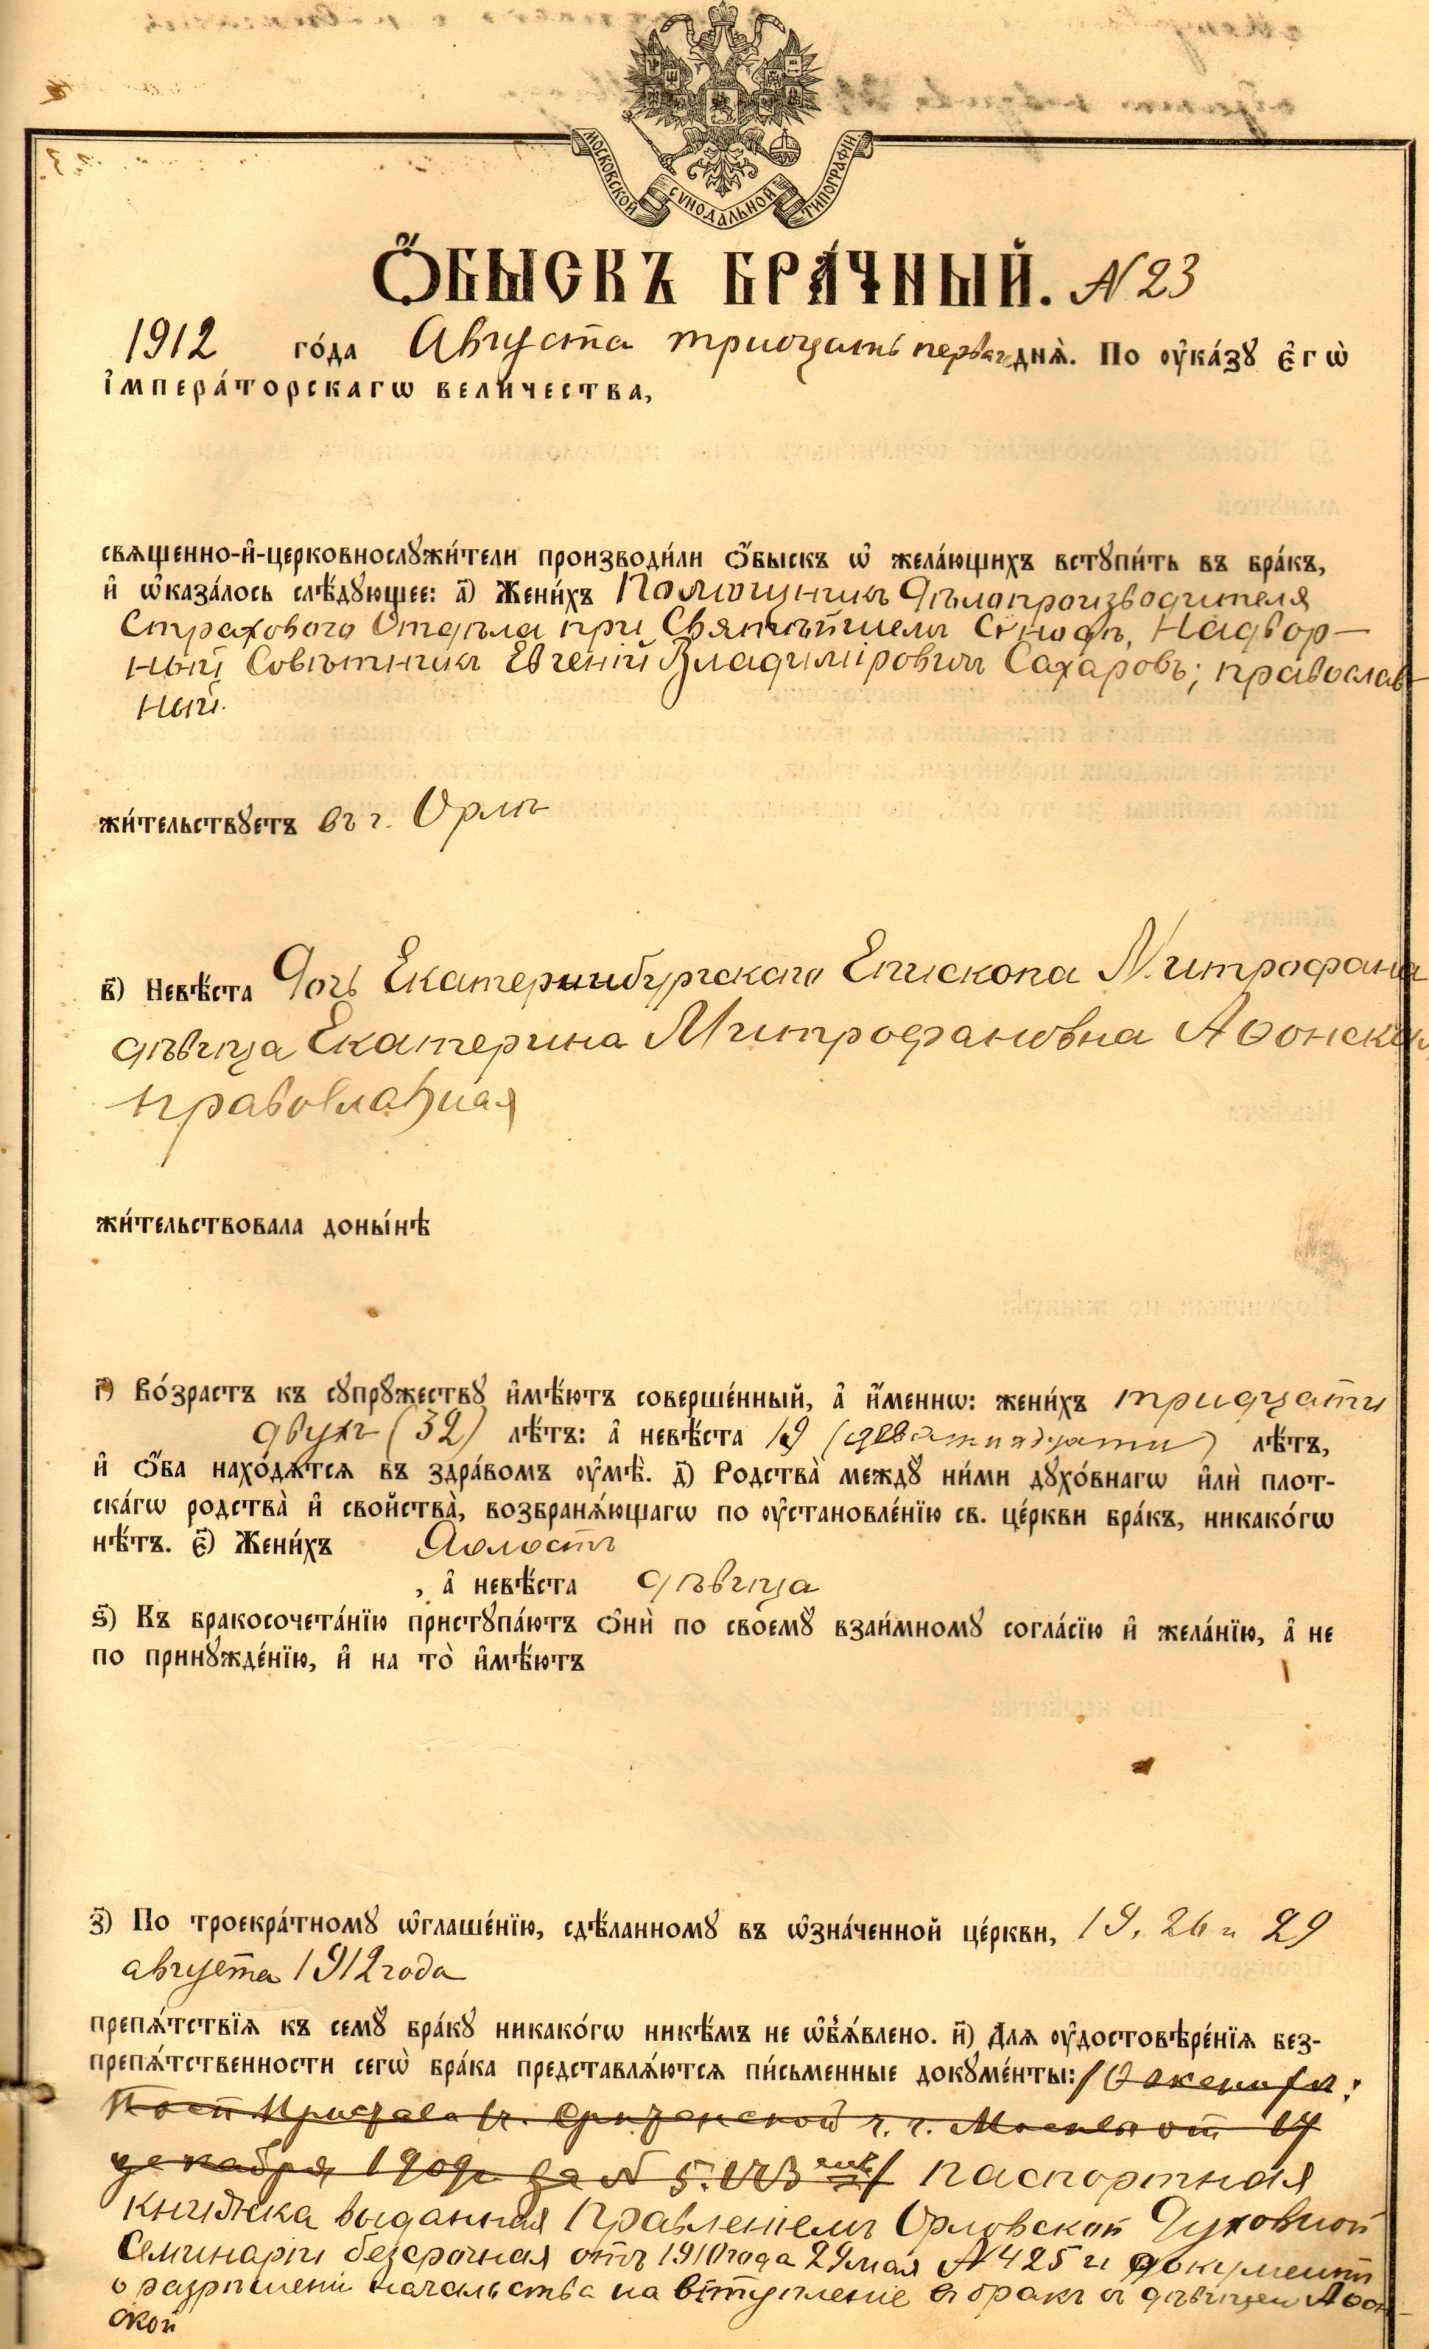 МОСКОВСКОЙ СѴНОДАЛЬНОЙ ТИПОГРАФІИ
Ѻ҆́БЫСКЪ БРА́ЧНЫЙ. N 23
1912 го́да Августа тридцать перваго днѧ̀. По ᲂу҆ка́зꙋ є҆гѡ̀
і҆мпера́торскагѡ вели́чества,
свѧщенно-и҆-церковнослꙋжи́тели производи́ли ѻ҆́быскъ ѡ҆ жела́ющихъ встꙋпи́ть въ бра́къ,
и҆ ѡ҆каза́лось слѣ́дꙋющее: а҃) Жени́хъ Помощникъ Дѣлопроизводителя
Страхового Отдѣла при Святѣйшемъ Сѵнодѣ, Надвор-
ный Совѣтникъ Евгеній Владиміровичъ Сахаровъ; православ-
ный.
жи́тельствꙋетъ въ г. Орлѣ
в҃) Невѣ́ста Дочь Екатеринбургскаго Епископа Митрофана
дѣвица Екатерина Митрофановна Аѳонская,
православная
жи́тельствовала доны́нѣ
г҃) Во́зрастъ къ сꙋпрꙋжествꙋ и҆мѣ́ютъ соверше́нный, а҆ и҆́меннѡ: жени́хъ тридцати
двухъ (32) лѣ́тъ: а҆ невѣ́ста 19 (девятнадцати) лѣ́тъ,
и҆ ѻ҆́ба нахо́дѧтсѧ въ здра́вомъ ᲂу҆мѣ̀. д҃) Родства̀ междꙋ ни́ми дꙋхо́внагѡ и҆лѝ плот-
ска́гѡ родства̀ и҆ свойства̀, возбранѧ́ющагѡ по ᲂу҆становле́нїю св. це́ркви бра́къ, никако́гѡ
нѣ́тъ. є҃) Жени́хъ Холостъ
, а҆ невѣ́ста дѣвица
ѕ҃) Къ бракосочета́нїю пристꙋпа́ютъ ѻ҆нѝ по своемꙋ̀ взаи́мномꙋ согла́сїю и҆ жела́нїю, а҆ не
по принꙋжде́нїю, и҆ на то̀ и҆мѣ́ютъ
з҃) По троекра́тномꙋ ѡ҆глаше́нїю, сдѣ́ланномꙋ въ ѡ҆зна́ченной це́ркви, 19, 26 и 29
августа 1912 года
препѧ́тствїѧ къ семꙋ̀ бра́кꙋ никако́гѡ никѣ́мъ не ѡ҆б̾ѧ́влено. и҃) Для ᲂу҆достовѣре́нїѧ без-
препѧ́тственности сегѡ̀ бра́ка представлѧ́ютсѧ пи́сьменные докꙋме́нты:
Пристава Срѣтенской ч. г. Москвы отъ 17
декабря 1909 г. за N паспортная
книжка выданная Правленіемъ Орловской Духовной
Семинаріи безсрочная отъ 1910 года 29 мая N 425 и документъ
о разрѣшеніи начальства на вступленіе въ бракъ съ дѣвицей Аѳон-
ской